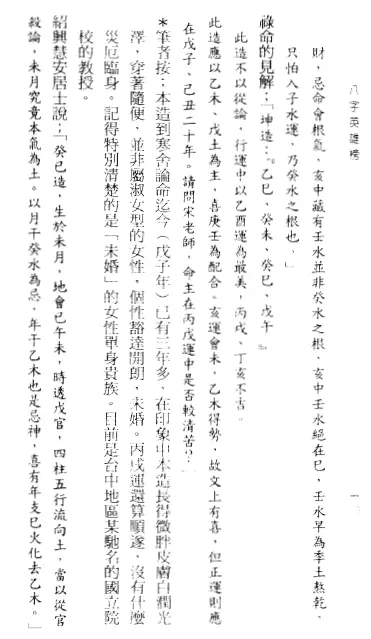 八字英雄榜
一
財，忌命會根氣，亥中藏有壬水並非癸水之根，亥中壬水絕在巳，壬水早為季土熬乾，
只怕入子水運，乃癸水之根也。」
祿命的見解：「坤造：。乙巳、癸未、癸巳、戊午』
此造不以從論，行運中以乙酉運為最美，丙戌、丁亥不吉。
此造應以乙木、戊土為主，喜庚壬為配合。亥運會未，乙木得勢，故文上有喜，但正運則應
在戊子、己丑二十年。請問宋老師，命主在丙戌運中是否較清苦？」
＊筆者按：本造到寒舍論命迄今（戊子年）已有三年多，在印象中本造長得微胖皮膚白潤光
澤，穿著隨便，並非屬淑女型的女性，個性豁達開朗，未婚。丙戌運還算順遂，沒有什麼
災厄臨身。記得特別清楚的是「未婚」的女性單身貴族。目前是台中地區某馳名的國立院
校的教授。
紹興慧安居士說：「癸巳造，生於未月，地會巳午未，時透戊官，四柱五行流向土，當以從官
殺論，未月究竟本氣為土。以月干癸水為忌，年干乙木也是忌神，喜有年支巳火化去乙木。」